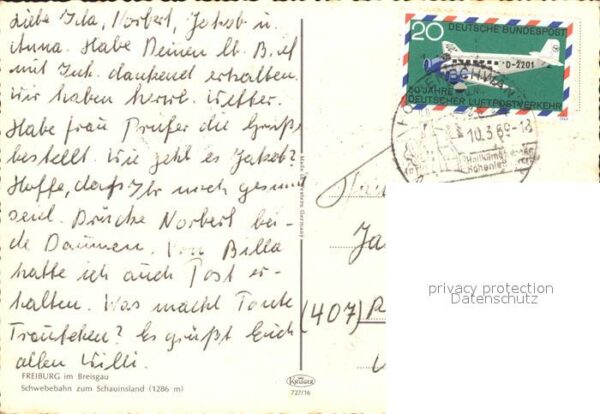 Liebe Ida, Norbert, Jakob u.
Anna. Habe Deinen lb. Brief
mit Ink. dankend erhalten.
Wir haben herrl. Wetter.
Habe Frau Prufer die Grüße
bestellt. Wie geht es Jakob?
Hoffe, daß Ihr noch gesund
seid. Drücke Norbert bei-
de Daumen. Von Billa
hatte ich auch Post er-
halten. Was macht Tante
Trautchen? Es grüßt Euch
allen Willi.
FREIBURG im Breisgau
Schwebebahn zum Schauinsland (1286 m)
Krüger
727/16
20
DEUTSCHE BUNDESPOST
D-2201
50 JAHRE
DEUTSCHER LUFTPOSTVERKEHR
10.3.69-18
(407)
privacy protection
Datenschutz